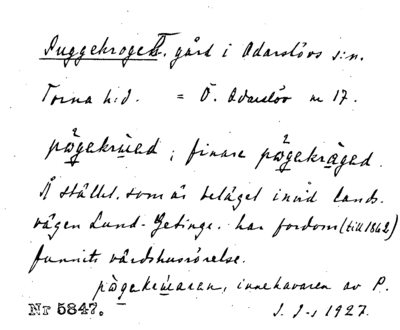 Puggekrogen, gård i Odarslövs s:n.
Torna h:d. = Ö. Odarslöv nr 17.
finare
Å stället, som är beläget invid lands-
vägen Lund - Getinge, har fordom (till 1862)
funnits värdshusrörelse.
innehavaren av P.
Nr 5847. I. I-s 1927.